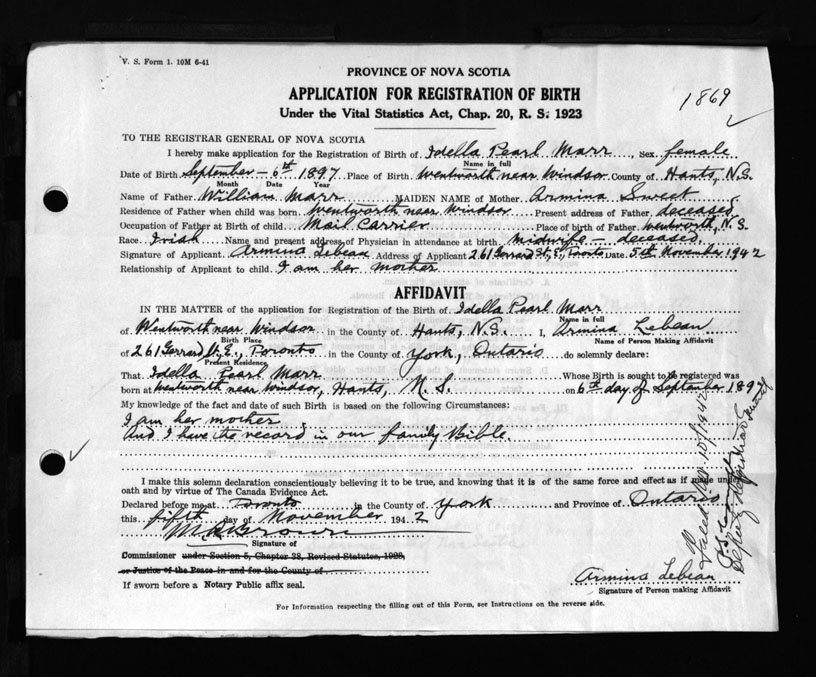 V. S. Form 1. 10M 6-41
PROVINCE OF NOVA SCOTIA
APPLICATION FOR REGISTRATION OF BIRTH
Under the Vital Statistics Act, Chap. 20, R. S. 1923
1869
TO THE REGISTRAR GENERAL OF NOVA SCOTIA
I hereby make application for the Registration of Birth of Idella Pearl Marr, Sex female
Name in full
Date of Birth September - 6th 1897 Place of Birth Wentworth near Windsor County of Hants, N.S.
Month Date Year
Name of Father William Marr MAIDEN NAME of Mother Armina Sweet
Residence of Father when child was born Wentworth near Windsor Present address of Father deceased
Occupation of Father at Birth of child Mail Carrier Place of birth of Father Wentworth, N.S.
Race Irish Name and present address of Physician in attendance at birth Midwife - deceased.
Signature of Applicant Armina Lebean Address of Applicant 261 Gerrard St. E., Toronto Date 5th November 1942
Relationship of Applicant to child I am her mother
AFFIDAVIT
IN THE MATTER of the application for Registration of the Birth of Idella Pearl Marr
Name in full
of Wentworth near Windsor in the County of Hants, N.S. I, Armina Lebean
Birth Place Name of Person Making Affidavit
of 261 Gerrard St. E., Toronto in the County of York, Ontario do solemnly declare:
Present Residence
That Idella Pearl Marr Whose Birth is sought to be registered was
born at Wentworth near Windsor, Hants, N. S. on 6th day of September 1897
My knowledge of the fact and date of such Birth is based on the following Circumstances:
I am her mother
And I have the record in our family Bible.
I make this solemn declaration conscientiously believing it to be true, and knowing that it is of the same force and effect as if made under
oath and by virtue of The Canada Evidence Act.
Declared before me at Toronto in the County of York and Province of Ontario
this fifth day of November 1942
Signature of
Commissioner under Section 5, Chapter 38, Revised Statutes, 1923,
or Justice of the Peace in and for the County of
If sworn before a Notary Public affix seal.
Armina Lebean
Signature of Person making Affidavit
For Information respecting the filling out of this Form, see Instructions on the reverse side.